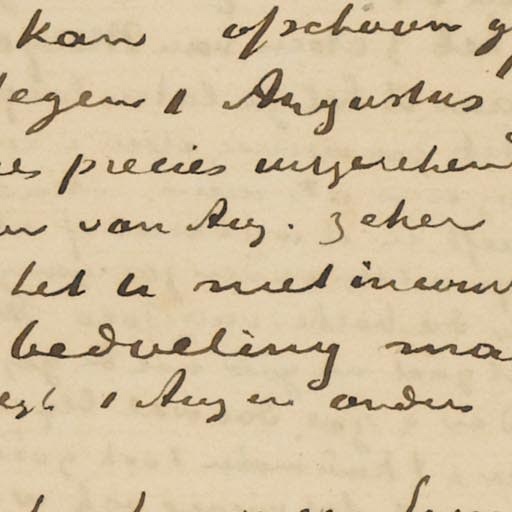 kan ofschoon
tegen 1 Augustus
precies uitgerekend
van Aug. zeker
het u niet in uw
bedoeling
1 Aug en anders